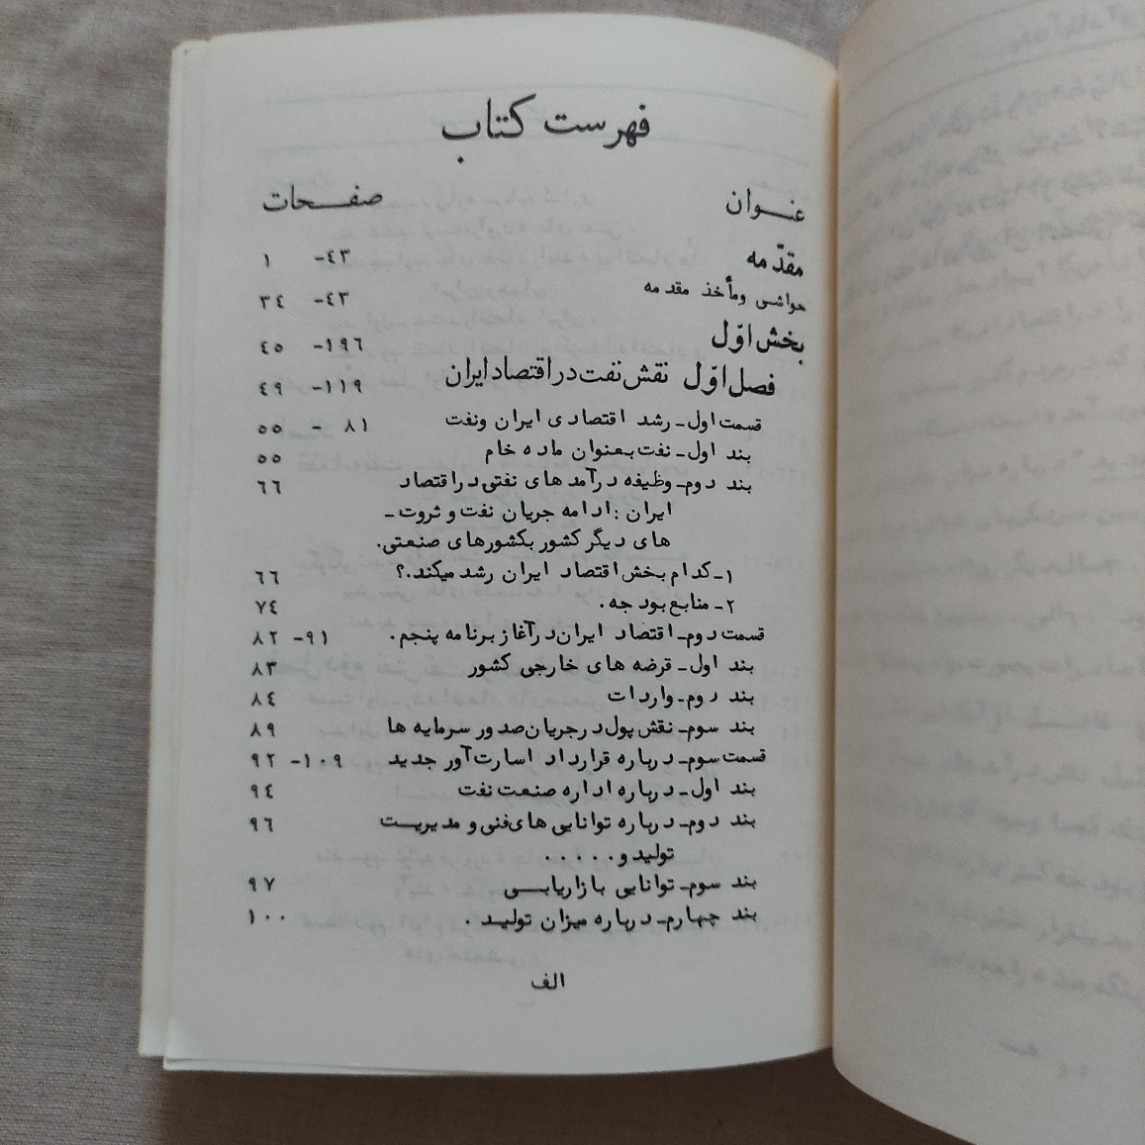 فهرست کتاب
عنوان صفحات
مقدّمه ۱ -۴۳
حواشی ومأخذ مقدمه ۳۴ -۴۳
بخش اوّل ۴۵ -۱۹۶
فصل اوّل نقش نفت در اقتصاد ایران ۴۹ -۱۱۹
قسمت اول- رشد اقتصادی ایران ونفت ۵۵ - ۸۱
بند اول- نفت بعنوان ماده خام ۵۵
بند دوم- وظیفه درآمد های نفتی در اقتصاد ۶۶
ایران : ادامه جریان نفت و ثروت-
های دیگر کشور بکشورهای صنعتی.
۱- کدام بخش اقتصاد ایران رشد میکند.؟ ۶۶
۲- منابع بودجه. ۷۴
قسمت دوم- اقتصاد ایران در آغاز برنامه پنجم. ۸۲ -۹۱
بند اول- قرضه های خارجی کشور ۸۳
بند دوم- واردات ۸۴
بند سوم- نقش پول در جریان صدور سرمایه ها ۸۹
قسمت سوم- درباره قرارداد اسارت آور جدید ۹۲ -۱۰۹
بند اول- درباره اداره صنعت نفت ۹۴
بند دوم- درباره توانایی های فنی و مدیریت ۹۶
تولید و.....
بند سوم- توانایی بازاریابی ۹۷
بند چهارم- درباره میزان تولید. ۱۰۰
الف